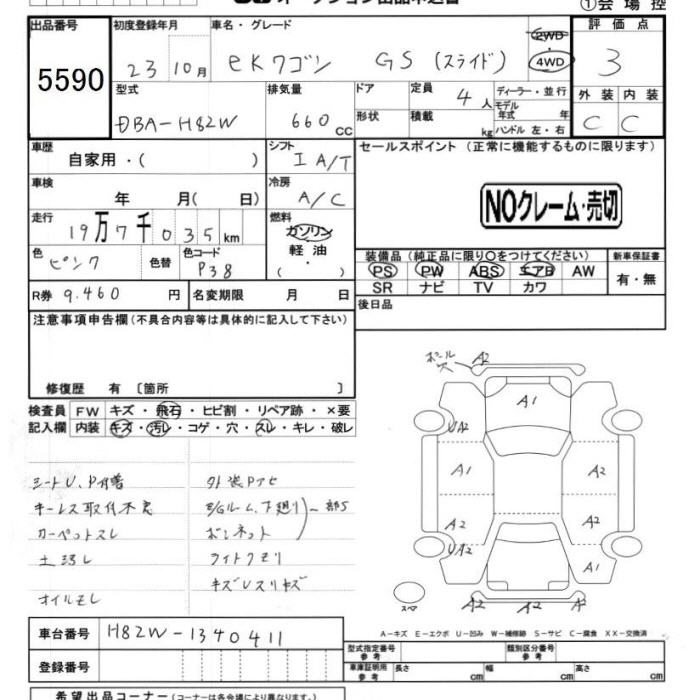 ①会場控
出品番号 初度登録年月 車名・グレード 評価点
5590 23 10月 eKワゴン GS (スライド) 2WD・4WD 3
型式 排気量 ドア 定員 4人 ディーラー・並行 外装 内装
DBA-H82W 660 CC 形状 積載 kg モデル年式 年 ハンドル 左・右 C C
車歴 自家用・( ) シフト I A/T セールスポイント (正常に機能するものに限ります)
車検 年 月( 日) 冷房 A/C
NOクレーム・売切
走行 19万7千035km 燃料 ガソリン・軽油・( )
色 ピンク 色替 色コード P38
装備品 (純正品に限り○をつけてください) 新車保証書
PS PW ABS エアB AW 有・無
SR ナビ TV カワ
R券 9.460 円 名変期限 月 日 後日品
注意事項申告欄 (不具合内容等は具体的に記入して下さい)
修復歴 有 〔箇所 〕
検査員 FW キズ・飛石・ヒビ割・リペア跡・×要
記入欄 内装 キズ・汚レ・コゲ・穴・スレ・キレ・破レ
ポール穴 A2
A1
UA2
A1 A2
A2 A2
UA2 A1
A2 A2 A2
スペア
外装Pナビ
キーレス取付不良 E/Gルーム、下廻リ 一部S
カーペットスレ ボンネット
ライトクモリ
オイルモレ
A-キズ E-エクボ U-凹み W-補修跡 S-サビ C-腐食 XX-交換済
車台番号 H82W-1340411
型式指定番号 参考 類別区分番号 参考
登録番号 車庫証明用 参考 長さ cm 幅 cm 高さ cm
希望出品コーナー (コーナーは各会場により異なります。)